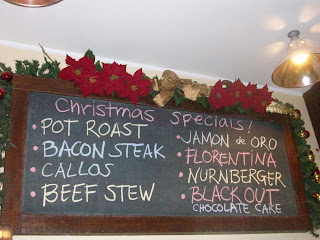 Christmas Specials!
• POT ROAST
• BACON STEAK
• CALLOS
• BEEF STEW
• JAMON de ORO
• FLORENTINA
• NURNBERGER
• BLACK OUT
CHOCOLATE CAKE